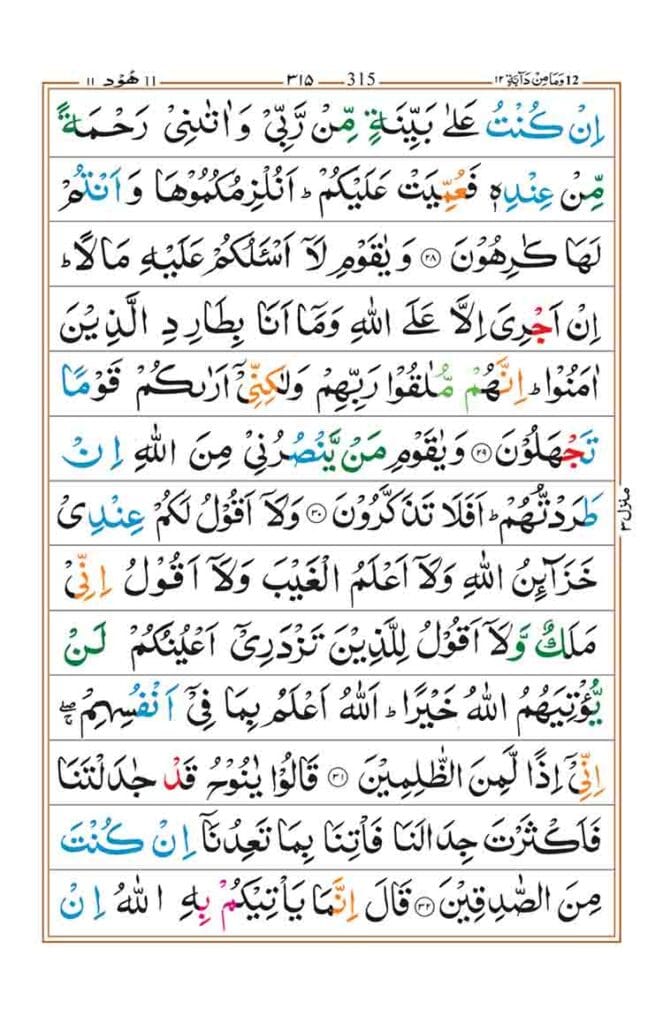 12 وَمَا مِنْ دَآبَّةٍ ۱۲ 315 ۳۱۵ 11 هُوْد ۱۱
اِنْ كُنْتُ عَلٰى بَيِّنَةٍ مِّنْ رَّبِّىْ وَاٰتٰىنِىْ رَحْمَةً
مِّنْ عِنْدِهٖ فَعُمِّيَتْ عَلَيْكُمْ ؕ اَنُلْزِمُكُمُوْهَا وَاَنْتُمْ
لَهَا كٰرِهُوْنَ ۲۸ وَيٰقَوْمِ لَاۤ اَسْـَٔلُكُمْ عَلَيْهِ مَالًا ؕ
اِنْ اَجْرِىَ اِلَّا عَلَى اللّٰهِ وَمَاۤ اَنَا بِطَارِدِ الَّذِيْنَ
اٰمَنُوْا ؕ اِنَّهُمْ مُّلٰقُوْا رَبِّهِمْ وَلٰكِنِّىْۤ اَرٰٮكُمْ قَوْمًا
تَجْهَلُوْنَ ۲۹ وَيٰقَوْمِ مَنْ يَّنْصُرُنِىْ مِنَ اللّٰهِ اِنْ
طَرَدْتُّهُمْ ؕ اَفَلَا تَذَكَّرُوْنَ ۳۰ وَلَاۤ اَقُوْلُ لَكُمْ عِنْدِىْ
خَزَآئِنُ اللّٰهِ وَلَاۤ اَعْلَمُ الْغَيْبَ وَلَاۤ اَقُوْلُ اِنِّىْ
مَلَكٌ وَّلَاۤ اَقُوْلُ لِلَّذِيْنَ تَزْدَرِىْۤ اَعْيُنُكُمْ لَنْ
يُّؤْتِيَهُمُ اللّٰهُ خَيْرًا ؕ اَللّٰهُ اَعْلَمُ بِمَا فِىْۤ اَنْفُسِهِمْ ۖۚ
اِنِّىْۤ اِذًا لَّمِنَ الظّٰلِمِيْنَ ۳۱ قَالُوْا يٰنُوْحُ قَدْ جٰدَلْتَنَا
فَاَكْثَرْتَ جِدَالَنَا فَاْتِنَا بِمَا تَعِدُنَاۤ اِنْ كُنْتَ
مِنَ الصّٰدِقِيْنَ ۳۲ قَالَ اِنَّمَا يَاْتِيْكُمْ بِهِ اللّٰهُ اِنْ
منزل ۳